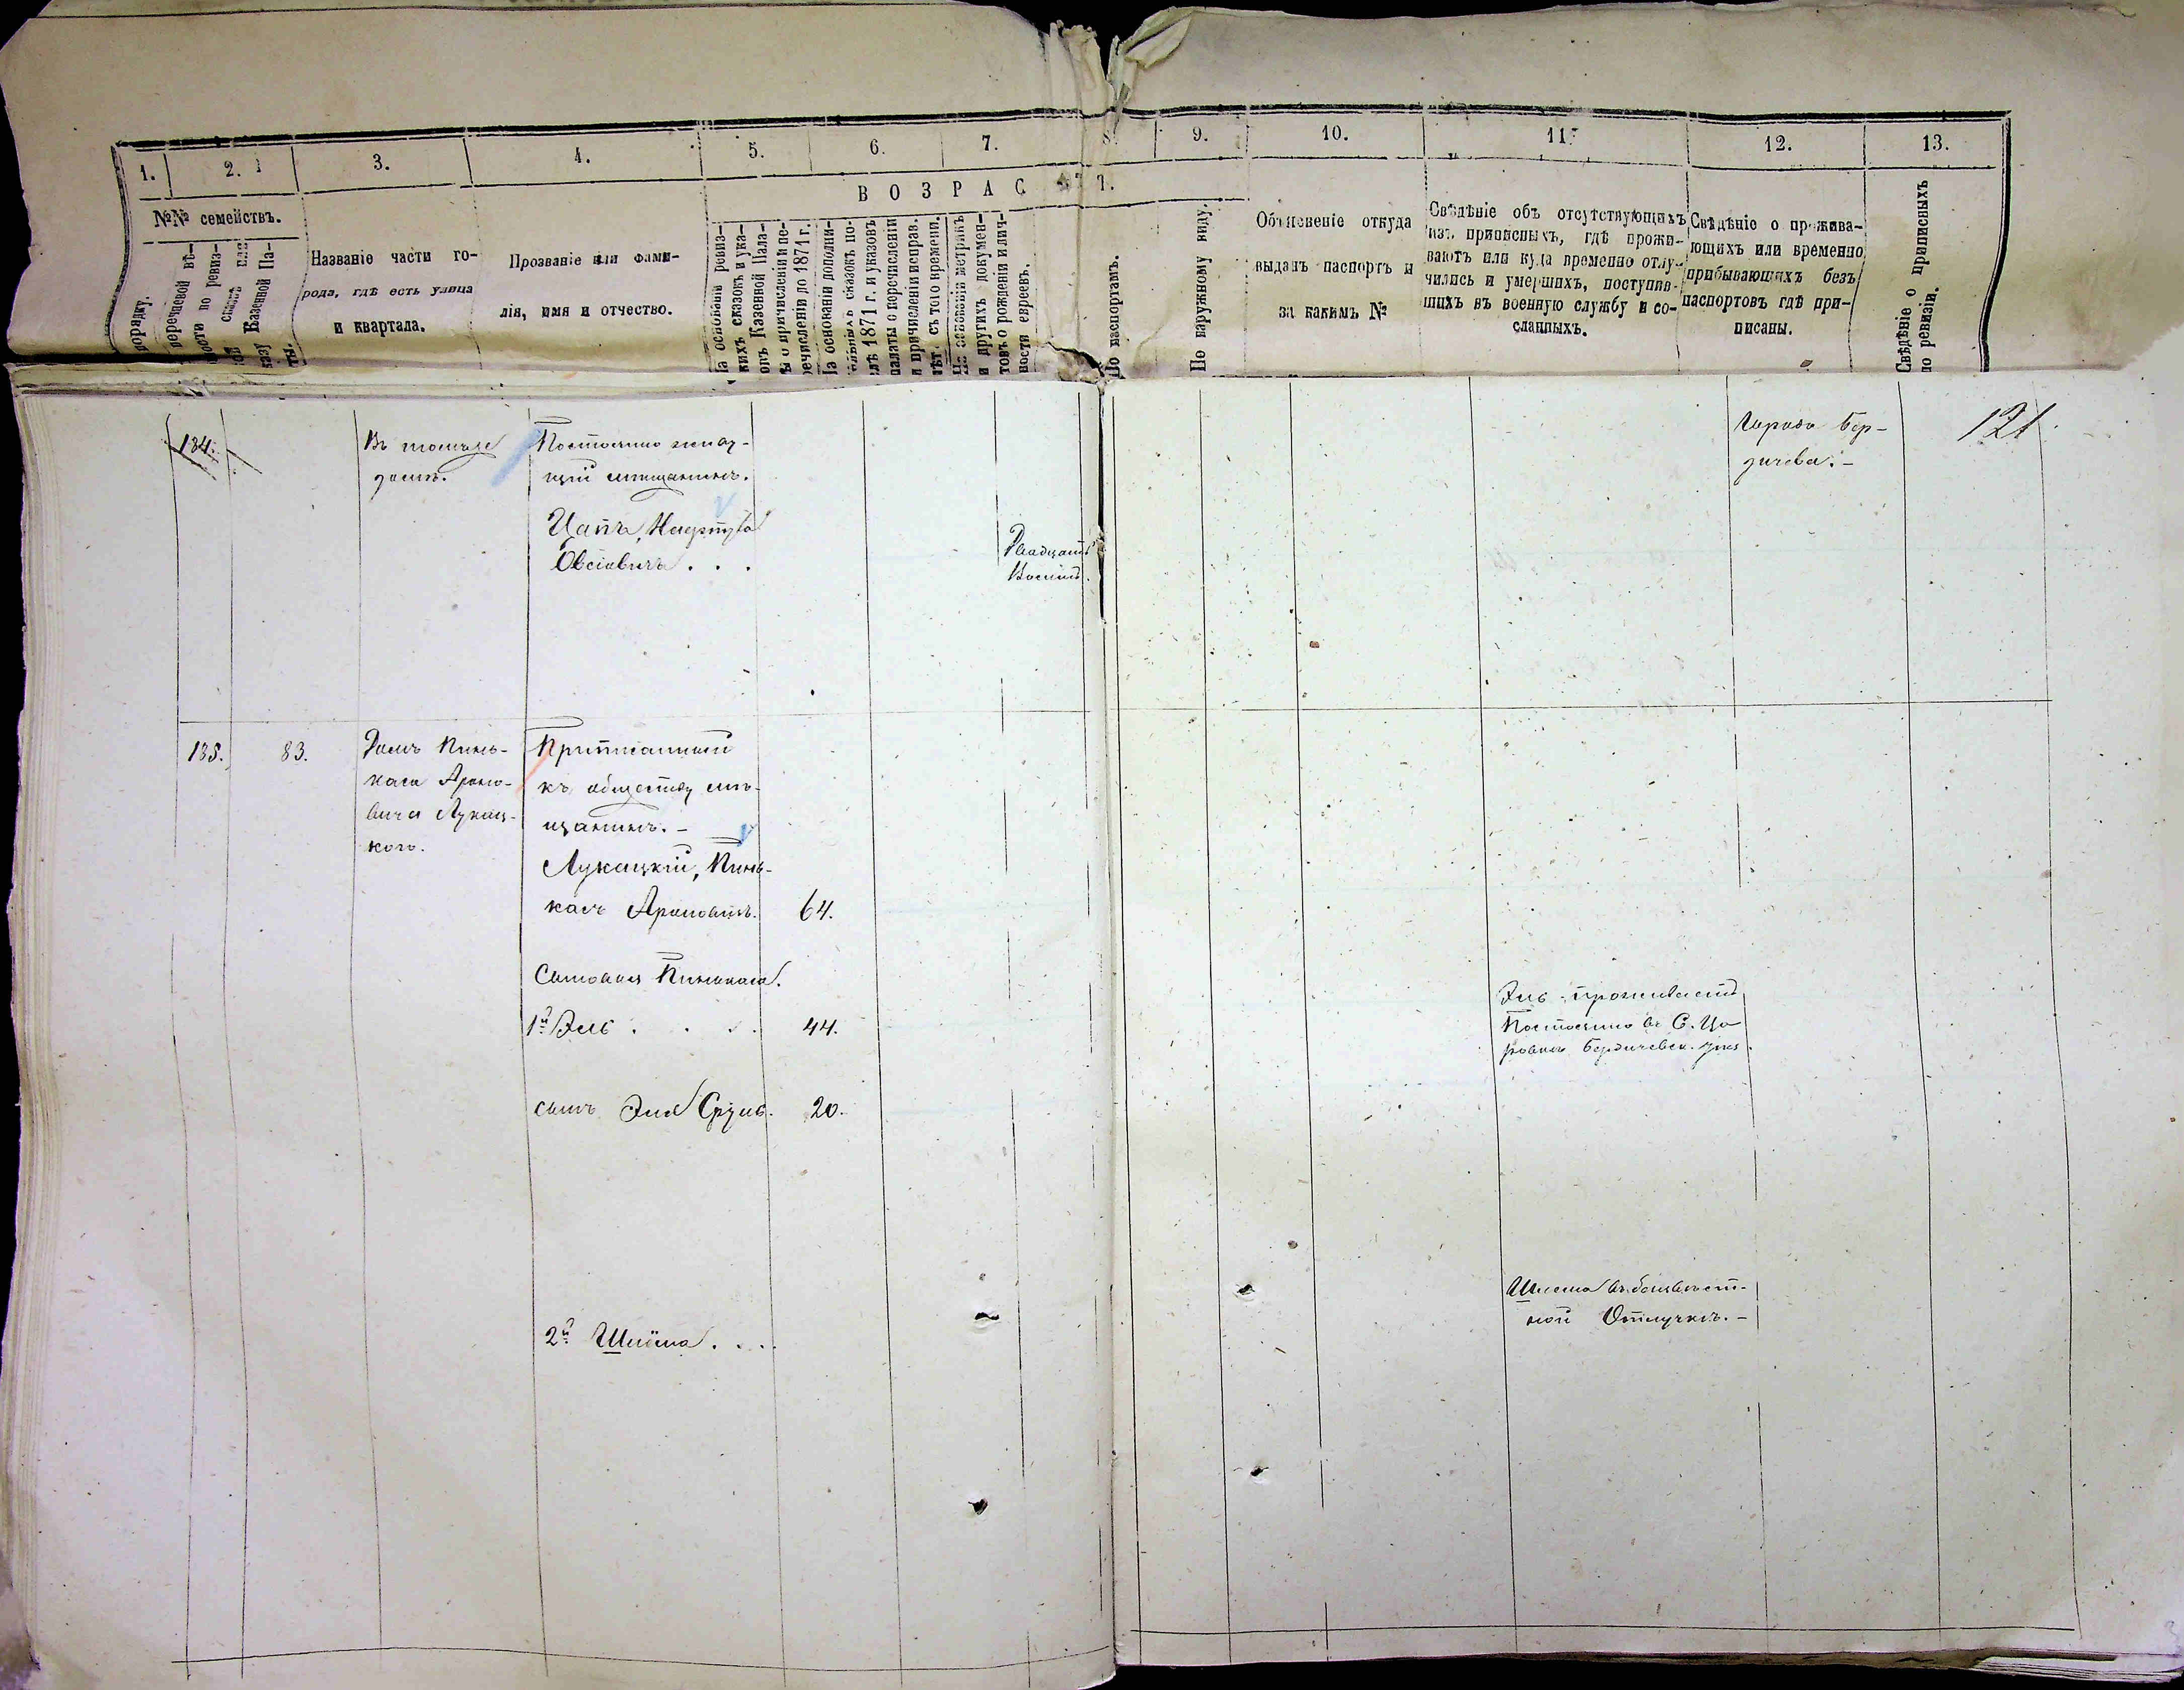 1.
2.
3.
4.
5.
6.
7.
8.
9.
10.
11.
12.
13.
ВОЗРАСТ.
№№ семействъ.
порядку.
перечневой вѣ-
ности по ревиз-
ной сказкѣ или
указу Казенной Па-
ты.
Названіе части го-
рода, гдѣ есть улица
и квартала.
Прозваніе или фами-
лія, имя и отчество.
На основаніи ревиз-
скихъ сказокъ и ука-
зовъ Казенной Пала-
ты о причисленіи и пе-
речисленіи до 1871 г.
На основаніи дополни-
тельныхъ сказокъ по-
слѣ 1871 г. и указовъ
палаты о перечисленіи
и причисленіи исправ.
лѣт. съ того времени.
На основаніи метрикъ
и другихъ докумен-
товъ о рожденіи и лич-
ности евреевъ.
По паспортамъ.
По наружному виду.
Объясненіе откуда
выданъ паспортъ и
за какимъ №
Свѣдѣніе объ отсутствующихъ
изъ приписныхъ, гдѣ прожи-
ваютъ или куда временно отлу-
чились и умершихъ, поступив-
шихъ въ военную службу и со-
сланныхъ.
Свѣдѣніе о прожива-
ющихъ или временно
прибывающихъ безъ
паспортовъ гдѣ при-
писаны.
Свѣдѣніе о приписныхъ
по ревизіи.
134.
Въ томъ же
домѣ.
Постоянно живу-
щій мѣщанинъ.
Цапъ,
Овсіовичъ . . .
Двадцать
Восемь.
Города Бер-
дичева. -
121
135.
83.
Домъ Пинь-
каса Ароно-
вича Лукац-
кого.
Приписанный
къ обществу мѣ-
щанинъ. -
Лукацкій, Пинь-
касъ Ароновичъ.
64.
Сыновья Пинькаса.
1й Эль . . . .
44.
Эль проживаетъ
Постоянно въ С.
Бердичевск. уѣз.
сынъ Эля Сруль.
20.
2й Шлёма . . . .
Шлема въ безъизвѣст-
ной Отлучкѣ. -